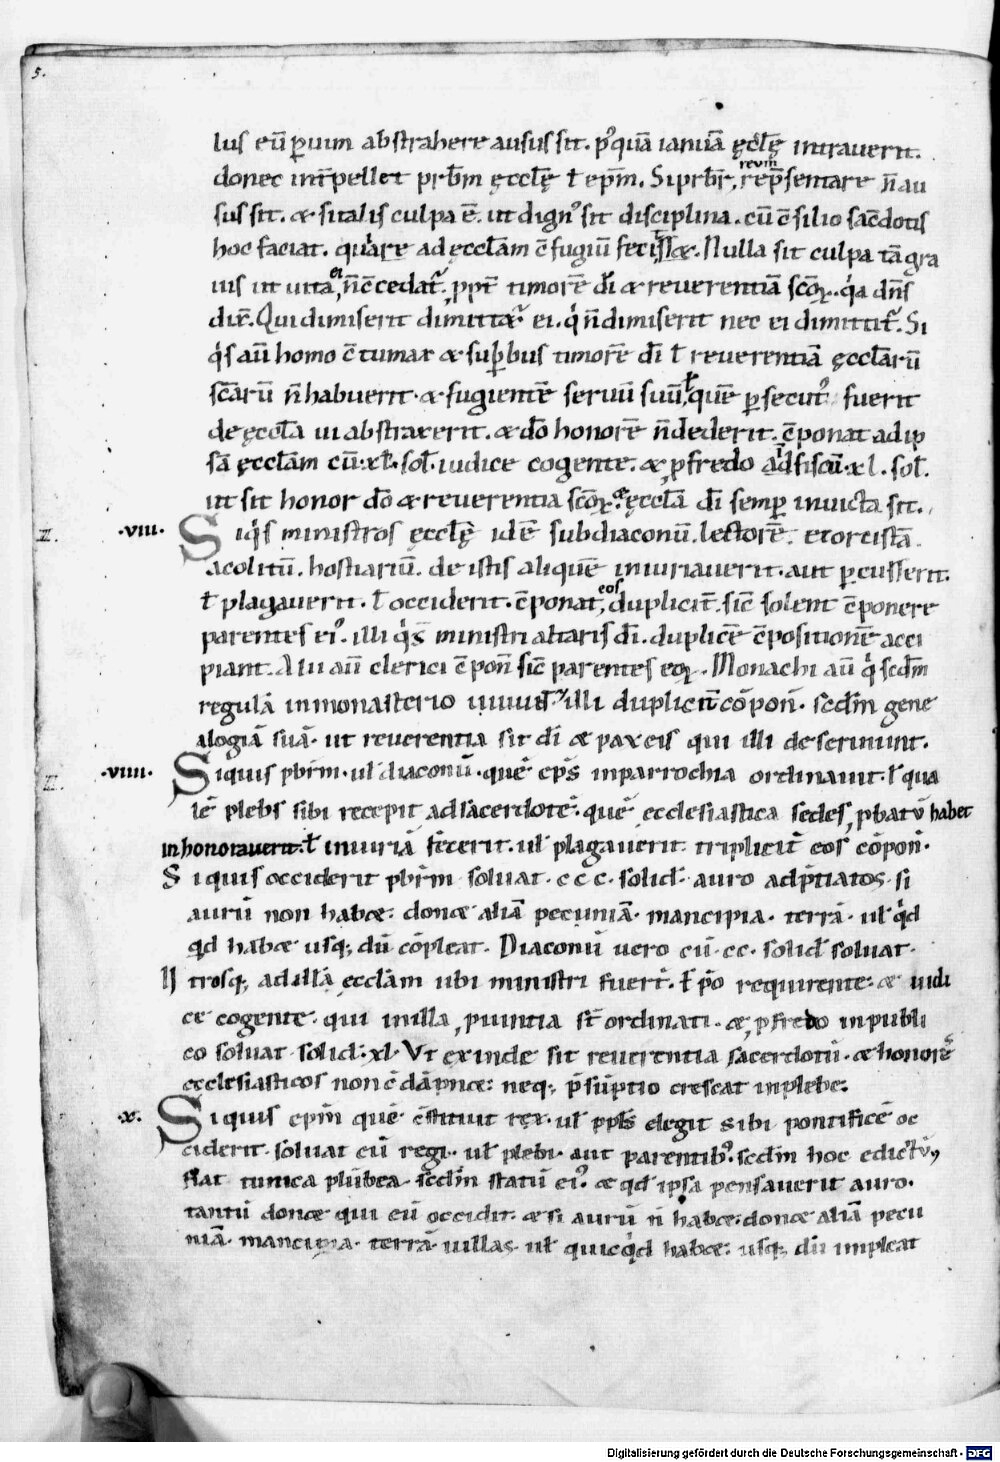 5.
lus eū ꝑuim abstrahere ausus sit. pꝰquā ianuā ęcclę intrauerit.
donec int̄pellet prb̄m ęcclę ł ep̄m. Si prb̄r, rep̄sentare n̄ au
reum
sus sit. & si talis culpa ē. ut dignꝰ sit disciplina. cū c̄silio sac̄dotis
hoc faciat. quare ad ęccl̄am c̄fugiū fecisset. Nulla sit culpa tā gra
uis ut uita, n̄ c̄cedatr̄. ꝓpt̄ timorē dī & reuerentiā sc̄oꝝ. qia dn̄s
ei
dix̄. Qui dimiserit dimittetr̄ ei. qi n̄ dimiserit nec ei dimittit̄. Si
qis aū homo c̄tumax & suꝑbus timorē dī ł reuerentiā ęccl̄arū
sc̄arū n̄ habuerit. & fugientē seruū suū ł quē ꝑsecutꝰ fuerit
de ęccl̄a ui abstraxerit. & dō honorē n̄ dederit. c̄ponat ad ip
sā ęccl̄am cū .xl. sol. iudice cogente. & ꝓ fredo ad fiscū .xl. sol.
ut sit honor dō & reuerentia sc̄oꝝ. & ęccl̄a dī semꝑ inuicta sit.
.VIII. Si qis ministros ęcclę id ē subdiaconū. lectorē. exorcistā.
acolitū. hostiariū. de istis aliquē iniuriauerit. aut ꝑcusserit.
ł plagauerit. ł occiderit. c̄ponat, duplicit̄. sic̄ solent c̄ponere
eos
parentes eiꝰ. illi qi s̄ ministri altaris dī. duplicē c̄positionē acci
piant. Alii aū clerici c̄pon̄ sic̄ parentes eoꝝ. Monachi aū qi scd̄m
regulā in monasterio uiuunt. illi duplicit̄ cōpon̄. scd̄m gene
alogiā suā. ut reuerentia sit dī & pax eis qui illi deseruiunt.
.VIIII. Si quis pbr̄m. ul̄ diaconū. quē ep̄s in parrochia ordinauit. ł qua
lē plebs sibi recepit ad sacerdotē. quē ecclesiastica sedes, ꝓbatū habet
inhonorauerit. ł iniuriā fecerit. ul̄ plagauerit. triplicit̄ eos cōpon̄.
Si quis occiderit pbr̄m soluat. ccc. solid̄. auro adp̄tiatos. si
aurū non habet: donet aliā pecuniā. mancipia. terrā. ul̄ qid
qd̄ habet usqꝫ dū cōpleat. Diaconū uero cū .cc. solid̄ soluat.
Ntrosqꝫ ad illā ęccl̄am ubi ministri fuer̄. ł ep̄o requirente. & iudi
ce cogente. qui in illa, ꝓuintia st̄ ordinati. &, ꝓ fredo in publi
co soluat. solid̄. xl. Vt exinde sit reuerentia sacerdotū. & honorē
ecclesiasticos non c̄dāpnet: neqꝫ p̄sūptio crescat in plebe.
.X. Si quis ep̄m quē c̄stituit rex. ul̄ ppl̄s elegit sibi pontificē oc
ciderit. soluat eū regi. ul̄ plebi. aut parentibꝰ. scd̄m hoc edictū,
fiat tunica plūbea. scd̄m statū eiꝰ. & qd̄ ipsa pensauerit auro.
tantū donet qui eū occidit. & si aurū n̄ habet: donet aliā pecu
niā. mancipia. terrā. uillas. ul̄ quicqid habet: usqꝫ dū impleat
Digitalisierung gefördert durch die Deutsche Forschungsgemeinschaft - DFG